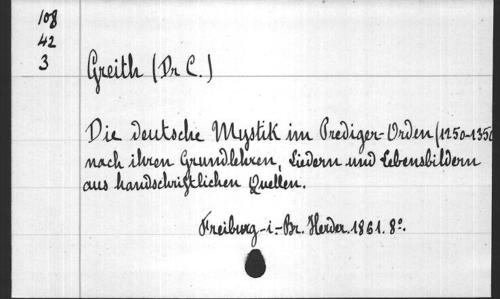 108
42
3
Greith (Dr C.)
Die deutsche Mystik im Prediger-Orden (1250-1350
nach ihren Grundlehren, Liedern und Lebensbildern
aus handschriftlichen Quellen.
Freiburg-i.-Br. Herder. 1861. 8º.